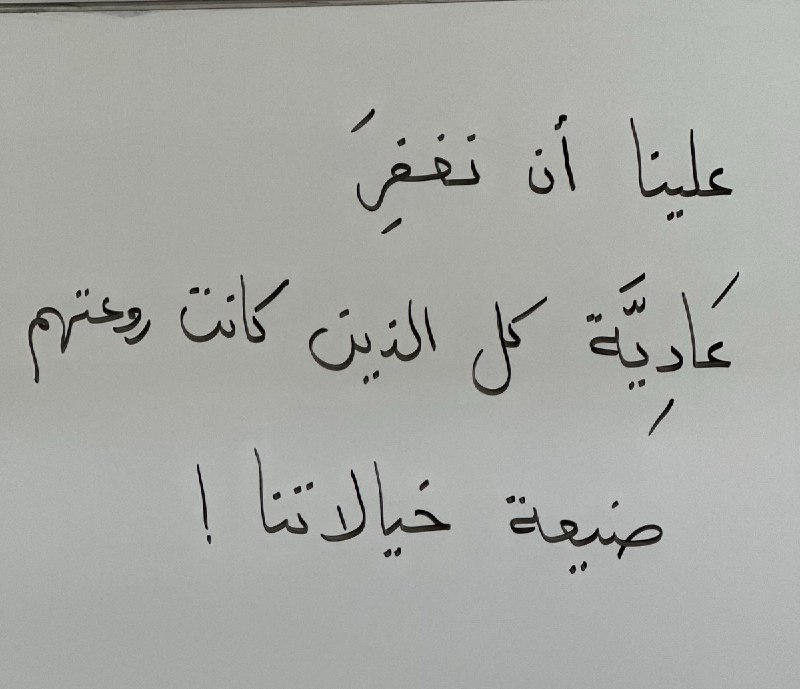 علينا أن نغفرَِ
عَادِيَّة كل الذين كانت روعتهم
صنيعة خيالاتنا !